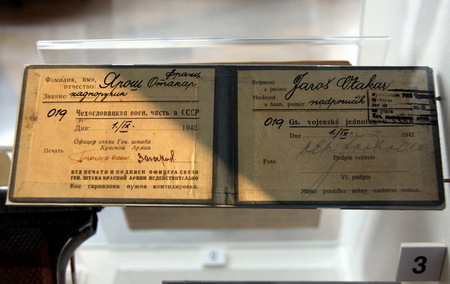 Фамилия, имя, отчество: Ярош Франц Отакар
Звание: надпоручик
019 Чехословацкая воен. часть в СССР
Дня: 1/IX. 1942
Офицер связи Ген. штаба
Красной Армии
Печать
БЕЗ ПЕЧАТИ И ПОДПИСИ ОФИЦЕРА СВЯЗИ
ГЕН. ШТАБА КРАСНОЙ АРМИИ НЕДЕЙСТВИТЕЛЬНО
Вне гарнизона нужна командировка.
Příjmení
a jméno: Jaroš Otakar
Hodnost
a hran. poměr: nadporučík
019 Čs. vojenská jednotka
Dne: 1/IX. 1942
Podpis velitele
Foto
Vl. podpis
Mimo posádku nutný cestovní rozkaz.
3